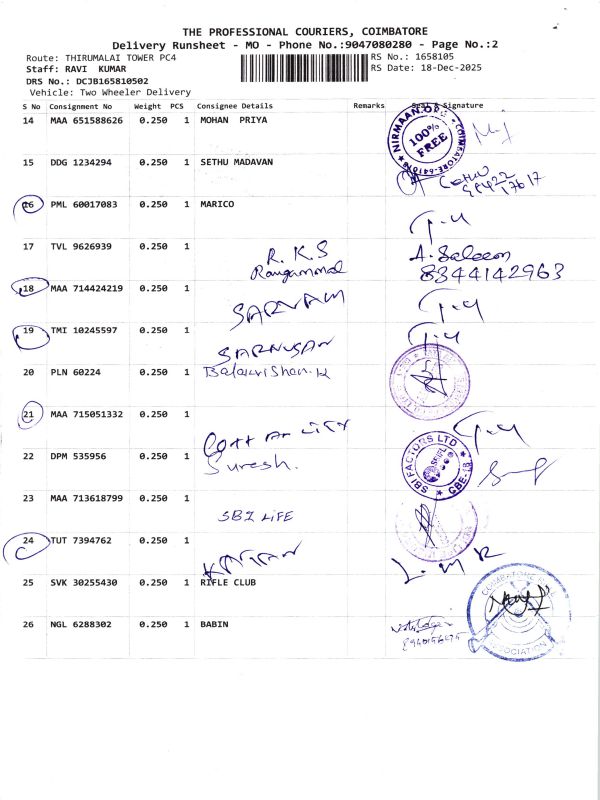 THE PROFESSIONAL COURIERS, COIMBATORE
Delivery Runsheet - MO - Phone No.:9047080280 - Page No.:2
Route: THIRUMALAI TOWER PC4 RS No.: 1658105
Staff: RAVI KUMAR RS Date: 18-Dec-2025
DRS No.: DCJB165810502
Vehicle: Two Wheeler Delivery
S No Consignment No Weight PCS Consignee Details Remarks Seal & Signature
14 MAA 651588626 0.250 1 MOHAN PRIYA
NIRMAAN.ORG COIMBATORE-641018
100% FREE
15 DDG 1234294 0.250 1 SETHU MADAVAN
16 PML 60017083 0.250 1 MARICO
17 TVL 9626939 0.250 1 R.K.S A. Saleem
Rangammal 8344142963
18 MAA 714424219 0.250 1
SARVAM
19 TMI 10245597 0.250 1
20 PLN 60224 0.250 1
21 MAA 715051332 0.250 1
22 DPM 535956 0.250 1 Suresh.
SBI FACTORS LTD CBE-18
23 MAA 713618799 0.250 1
SBI LIFE
24 TUT 7394762 0.250 1
25 SVK 30255430 0.250 1 RIFLE CLUB
COIMBATORE RIFLE ASSOCIATION
26 NGL 6288302 0.250 1 BABIN